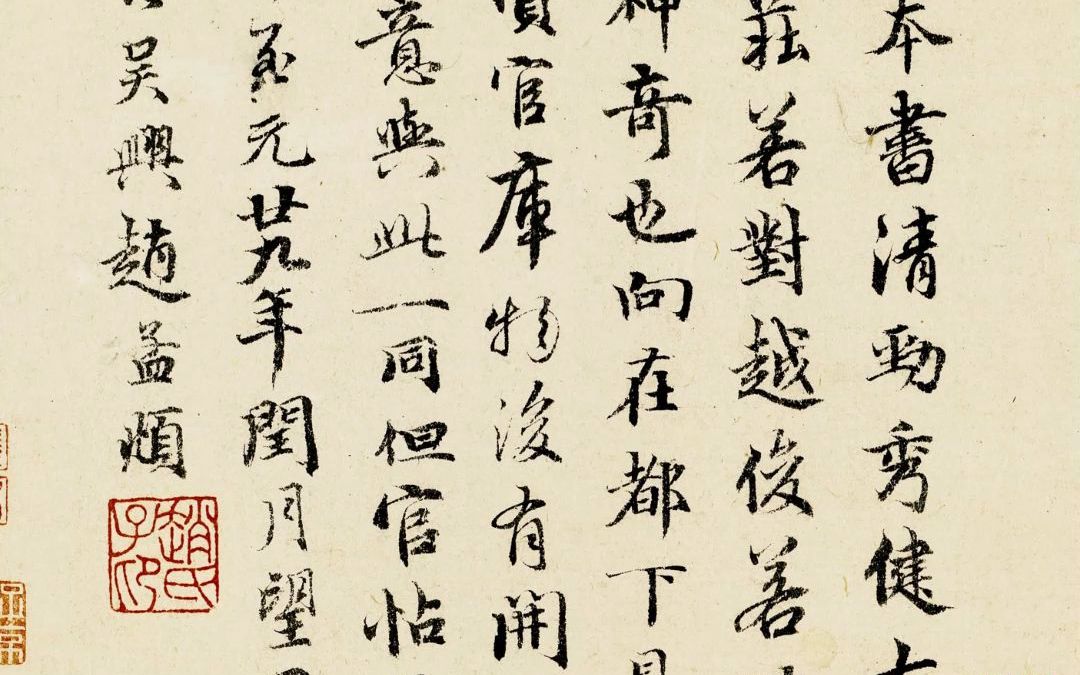 本書清勁秀健
莊若對越俊若
神奇也向在都下見
賓官庫物後有開
意與此一同但官帖
至元廿九年閏月望
吳興趙孟頫
趙氏子印